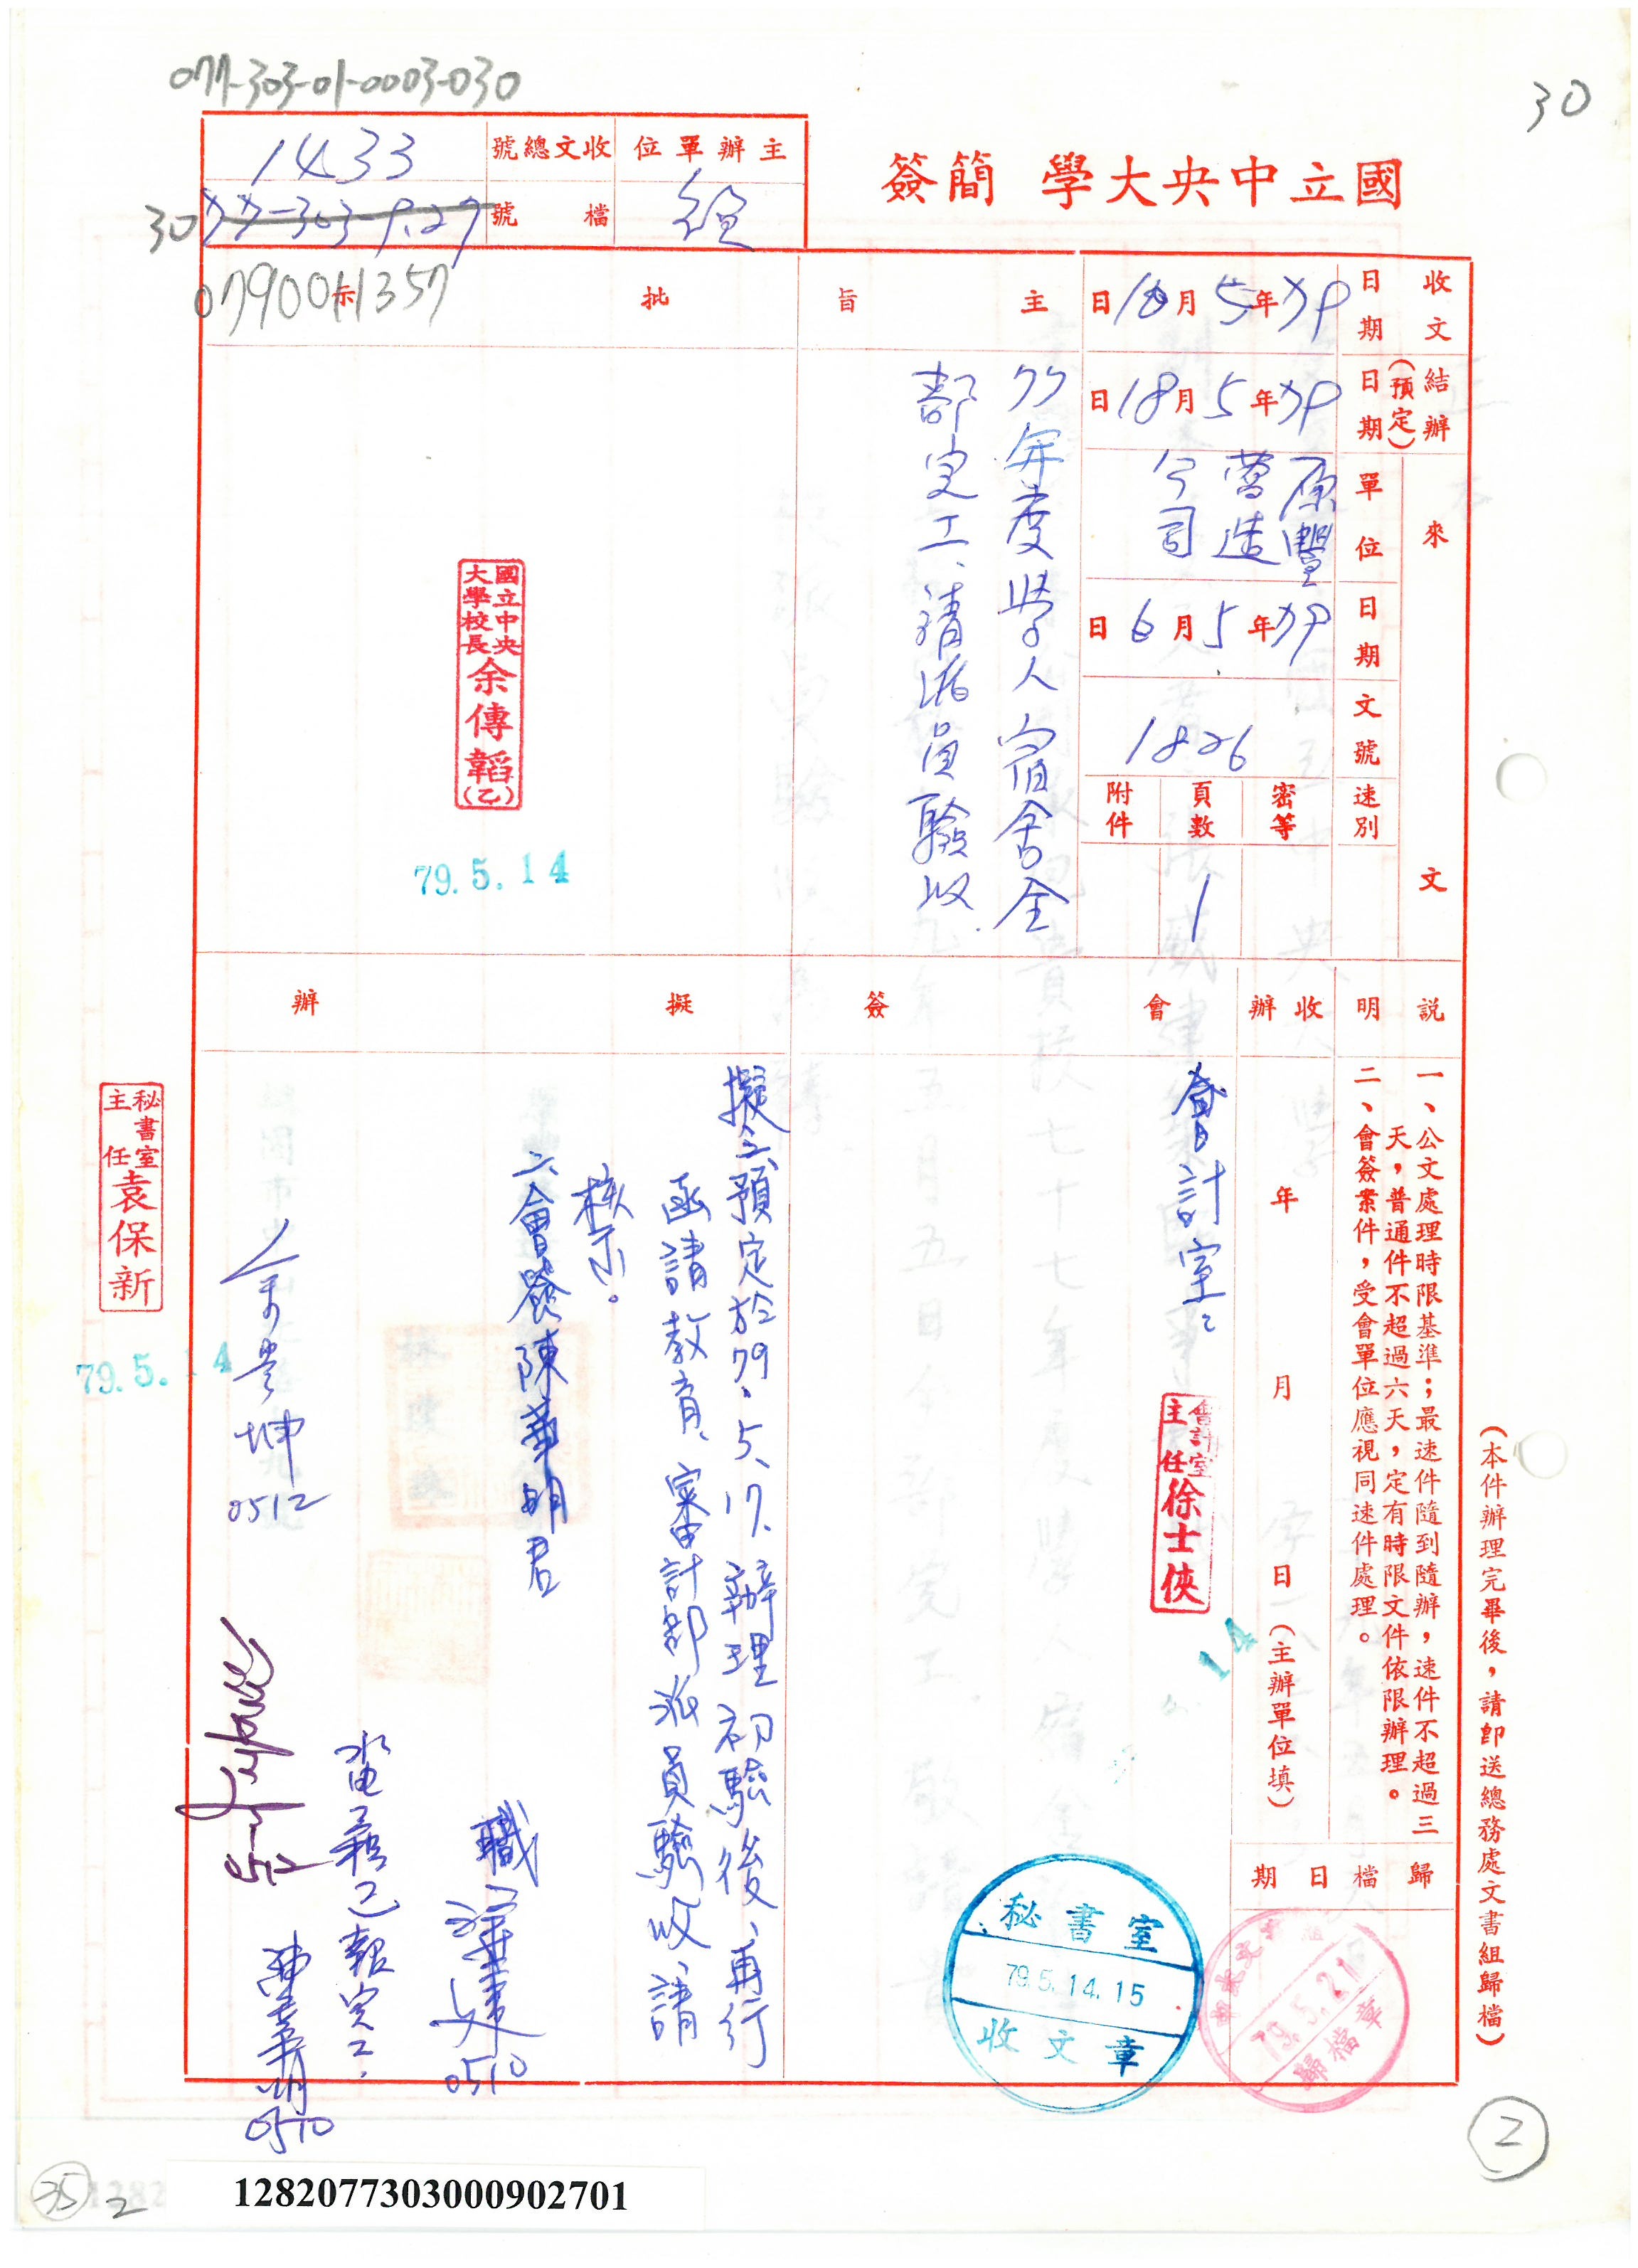 077-303-01-0003-030
30
國立中央大學 簡簽
主辦單位
營
收文總號
1433
檔號
77-303-9.27
30
0790011357
收文日期
79年5月10日
結辦(預定)日期
79年5月18日
來文
單位
原豐
營造
公司
日期
79年5月6日
文號
1826
速別
密等
頁數
1
附件
主旨
77年度學人宿舍全
部完工、請派員驗收.
批示
國立中央
大學校長
余傳韜
(乙)
79.5.14
說明
一、公文處理時限基準；最速件隨到隨辦，速件不超過三
天，普通件不超過六天，定有時限文件依限辦理。
二、會簽案件，受會單位應視同速件處理。
收辦
年月日(主辦單位填)
歸檔日期
會簽
會計室：
會計室
主任
徐士俠
14
擬辦
擬：一、預定於79.5.17.辦理初驗後、再行
函請教育、審計部派員驗收、請
核示。
二、會簽陳華明君
職
0510
水電工程已報完工.
陳華明
0510
0512
5/12
秘書室
主任
袁保新
79.5.14
秘書室
79.5.14.15
收文章
79.5.21
歸檔章
(本件辦理完畢後，請卽送總務處文書組歸檔)
2
35
2
1282077303000902701